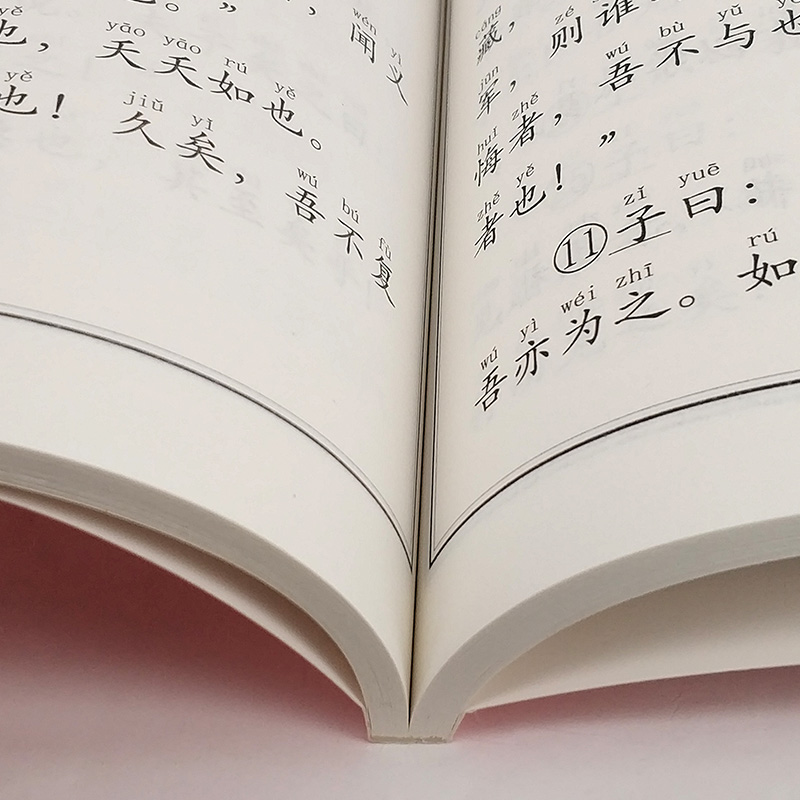 wén yì
。” ，闻义
yě yāo yāo rú yě
也，夭夭如也。
yě jiǔ yǐ wú bú fù
也！久矣，吾不复
cáng zé
藏，则谁
jūn wú bù yǔ yě
军，吾不与也
huǐ zhě
悔者，
zhě yě
者也！”
zǐ yuē
⑪子曰：
wú yì wéi zhī rú
吾亦为之。如